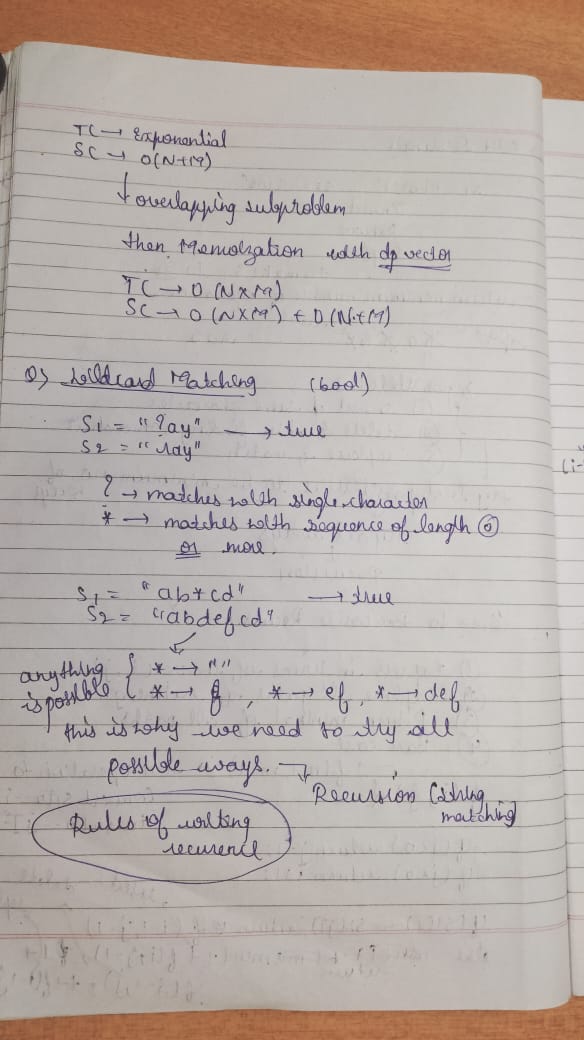 TC → Exponential
SC → O(N+M)
↓ overlapping subproblem
then Memoization with dp vector
TC → O(N×M)
SC → O(N×M) + O(N+M)
Q) Wildcard Matching (bool)
S1 = "?ay" → true
S2 = "ray"
? → matches with single character
* → matches with sequence of length 0
or more.
S1 = "ab*cd" → true
S2 = "abdefcd"
anything { * → ""
is possible { * → f, * → ef, * → def
this is why we need to try all
possible ways. →
Recursion (string
matching)
Rules of writing
recurence
(i-